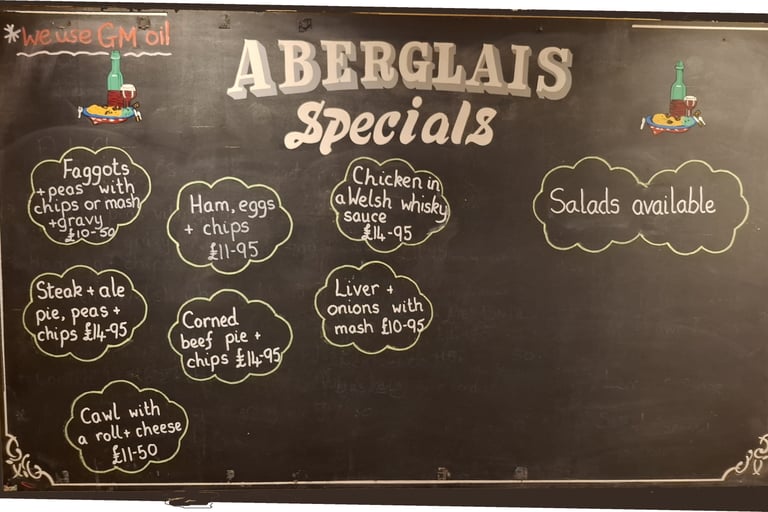 *We use GM oil
ABERGLAIS
Specials
Faggots
+ peas with
chips or mash
+ gravy
£10-50
Ham, eggs
+ chips
£11-95
Chicken in
a Welsh whisky
sauce
£14-95
Salads available
Steak + ale
pie, peas +
chips £14-95
Corned
beef pie +
chips £14-95
Liver +
onions with
mash £10-95
Cawl with
a roll + cheese
£11-50